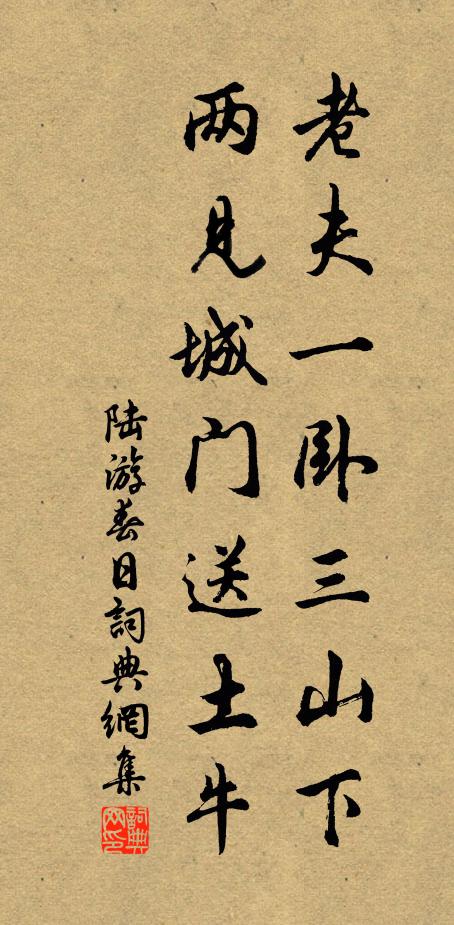 老夫一卧三山下
两见城门送土牛
陆游春日詞典網集
詞典网印